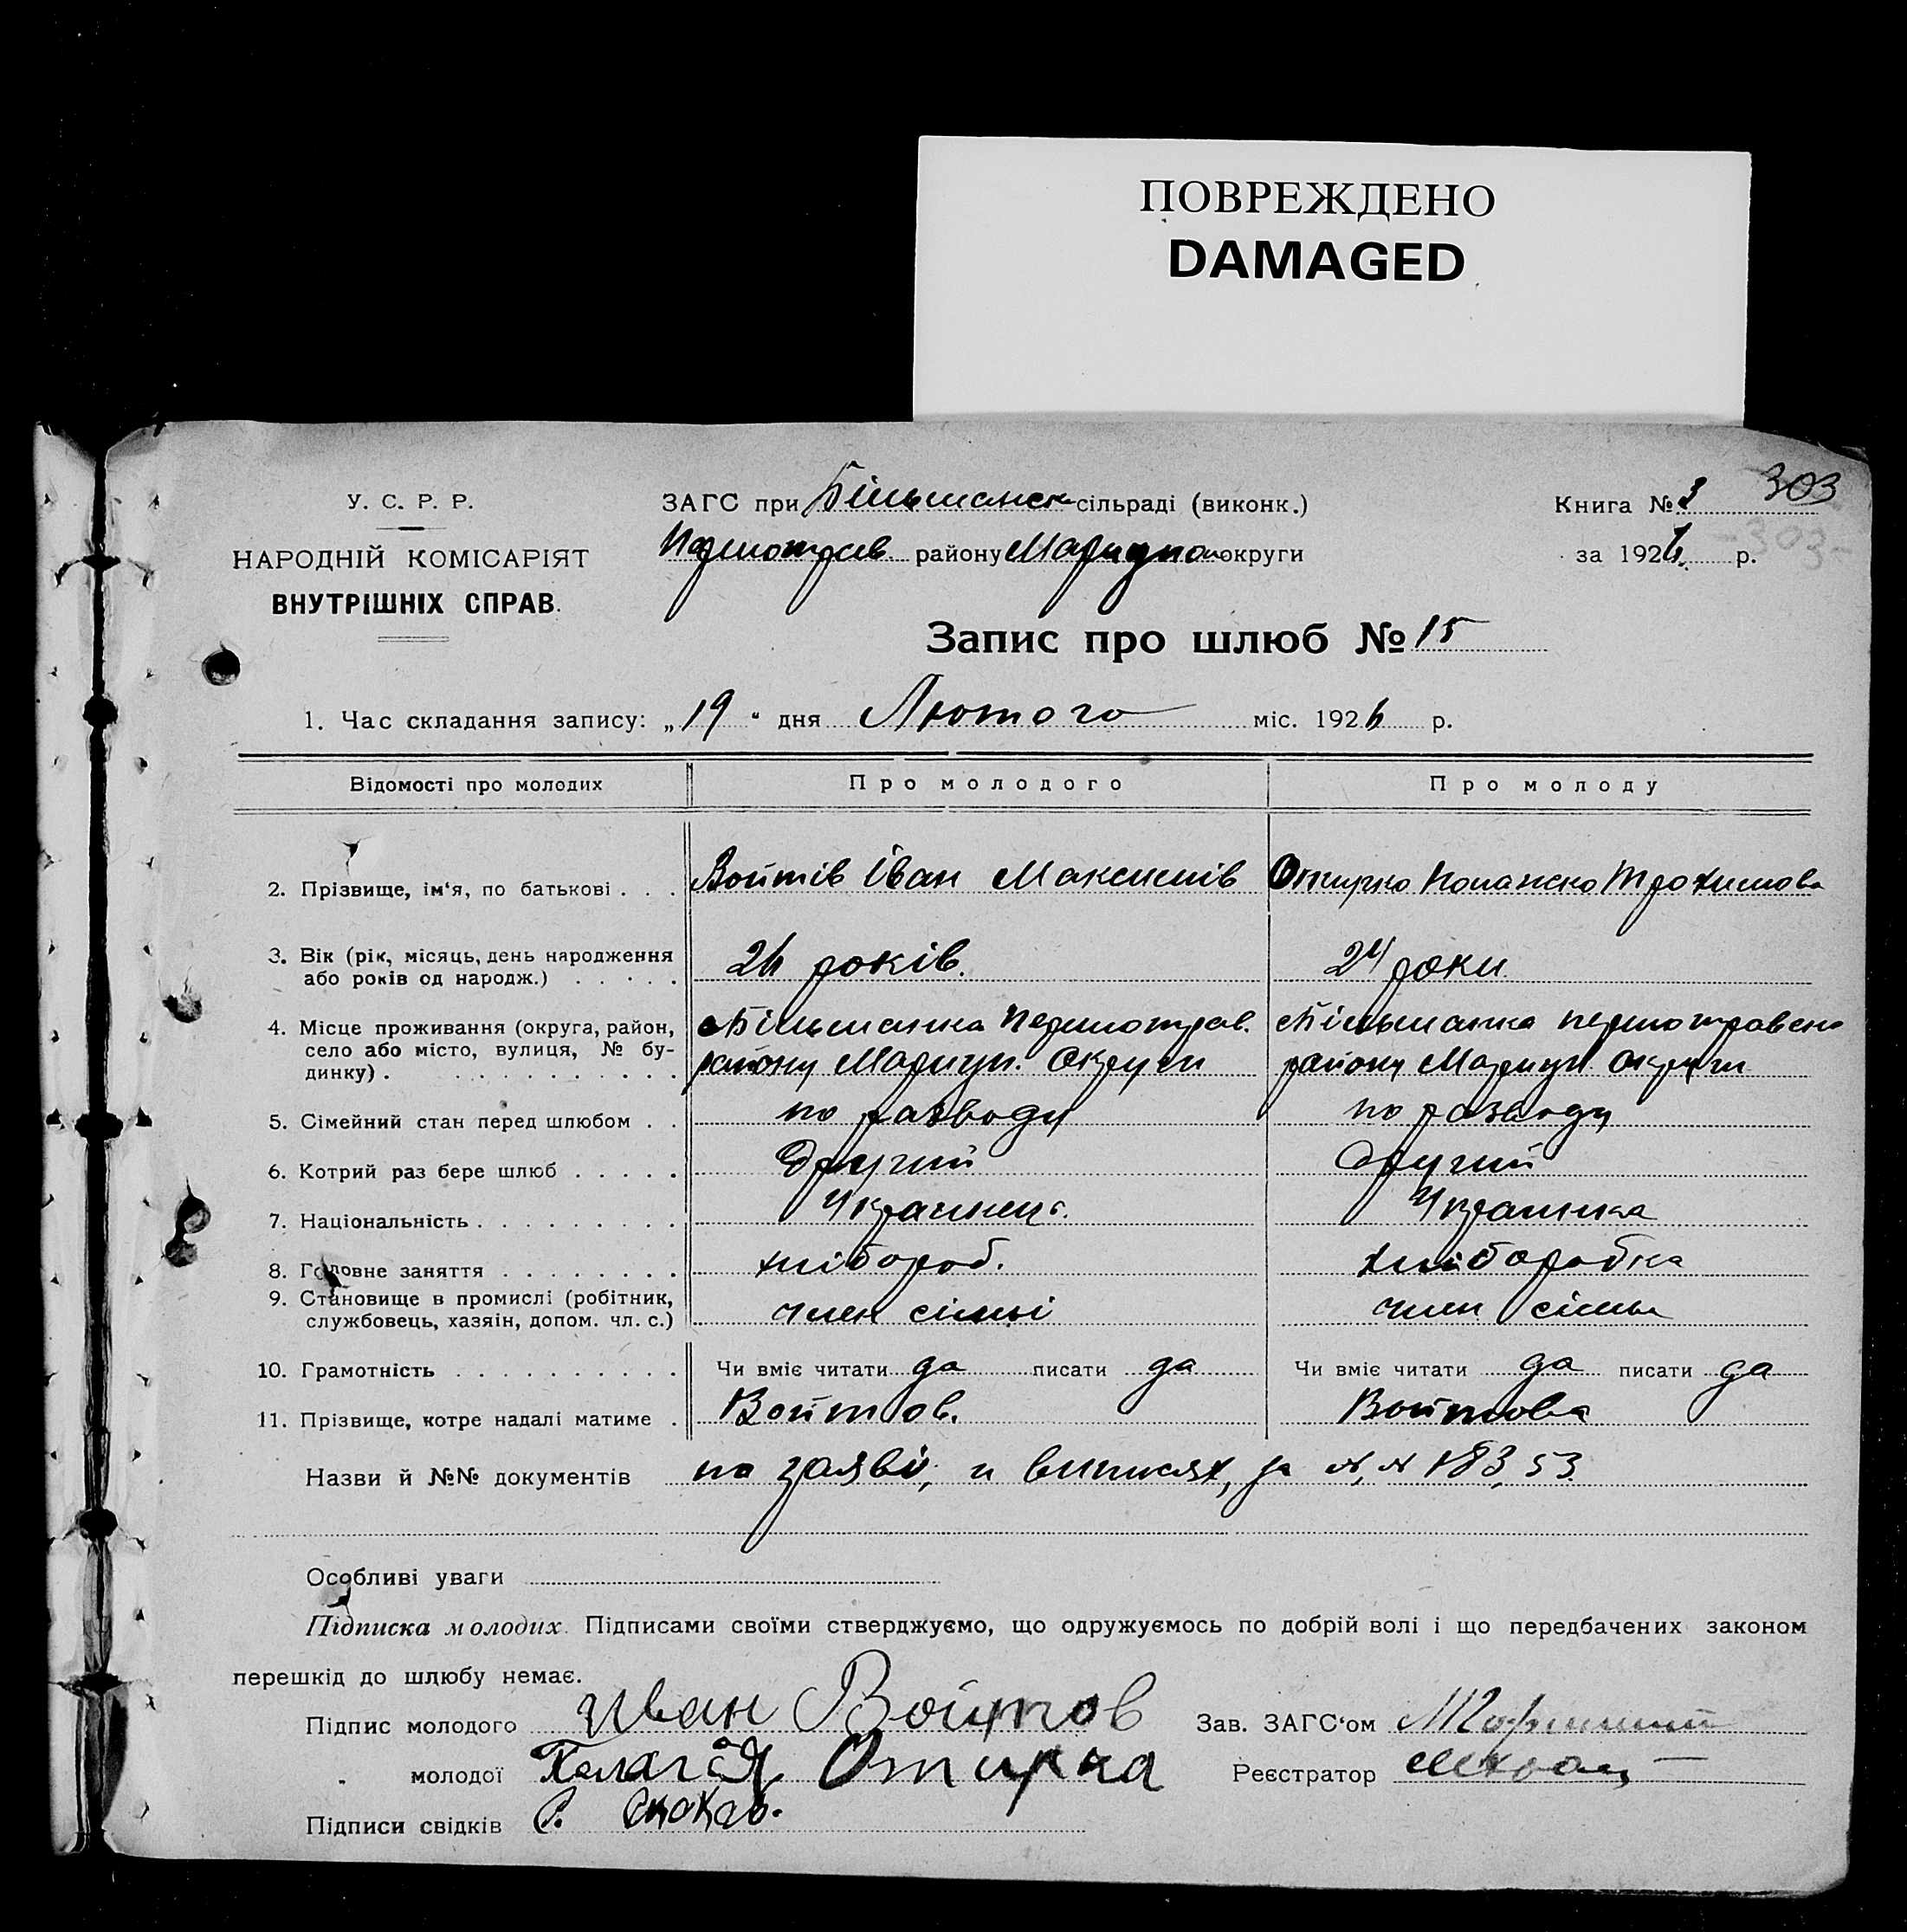 ПОВРЕЖДЕНО
DAMAGED
303
У. С. Р. Р.
НАРОДНІЙ КОМІСАРІЯТ
ВНУТРІШНІХ СПРАВ.
ЗАГС при Більманск сільраді (виконк.)
Першотрав. району Маріупол округи
Книга № 3
за 1926 р.
-303-
Запис про шлюб № 15
1. Час складання запису: „19" дня Лютого міс. 1926 р.
Відомості про молодих
Про молодого
Про молоду
2. Прізвище, ім'я, по батькові . . .
Войтів Іван Максимів
Отирко Трохимова
3. Вік (рік, місяць, день народження
або років од народж.) . . . . .
26 років.
24 роки
4. Місце проживання (округа, район,
село або місто, вулиця, № бу-
динку) . . . . . . . . . . .
с Більманка Першотрав.
району Мариуп. Округи
с Більманка першотравен
району Мариуп округи
5. Сімейний стан перед шлюбом . .
по разводу
по разводу
6. Котрий раз бере шлюб . . . . .
Другий
Другий
7. Національність . . . . . . . . .
Украинец.
Украинка
8. Головне заняття . . . . . . . .
хлібороб.
хліборобка
9. Становище в промислі (робітник,
службовець, хазяін, допом. чл. с.)
член сімьі
член сімьи
10. Грамотність . . . . . . . . . .
Чи вміє читати да писати да
Чи вміє читати да писати да
11. Прізвище, котре надалі матиме .
Войтов.
Войтова
Назви й №№ документів по заяві, и виписях, за №, № 183, 53.
Особливі уваги
Підписка молодих. Підписами своїми стверджуємо, що одружуємось по добрій волі і що передбачених законом
перешкід до шлюбу немає.
Підпис молодого Иван Войтов
Зав. ЗАГС'ом
„ молодої Палагія Отирка
Реєстратор
Підписи свідків